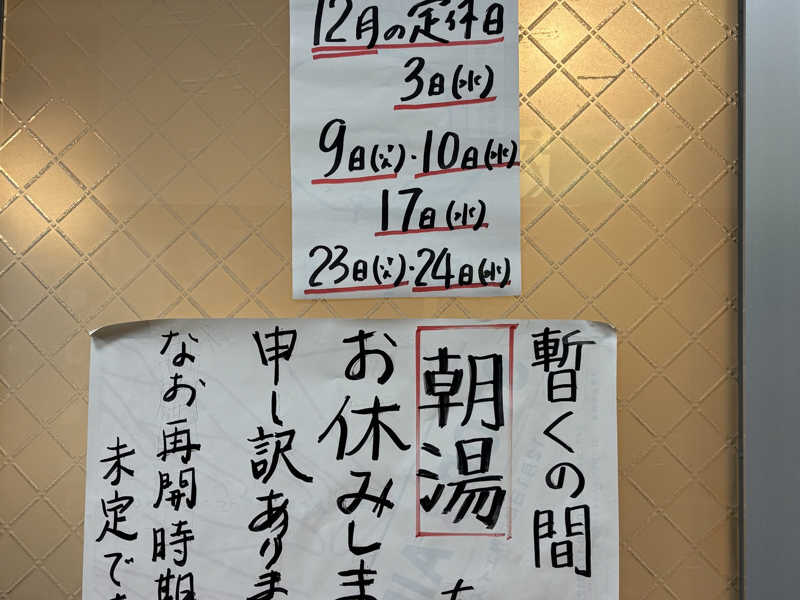 12月の定休日
3日(水)
9日(火)・10日(水)
17日(水)
23日(火)・24日(水)
暫くの間
朝湯
お休みしま
申し訳ありま
なお再開時期
未定で